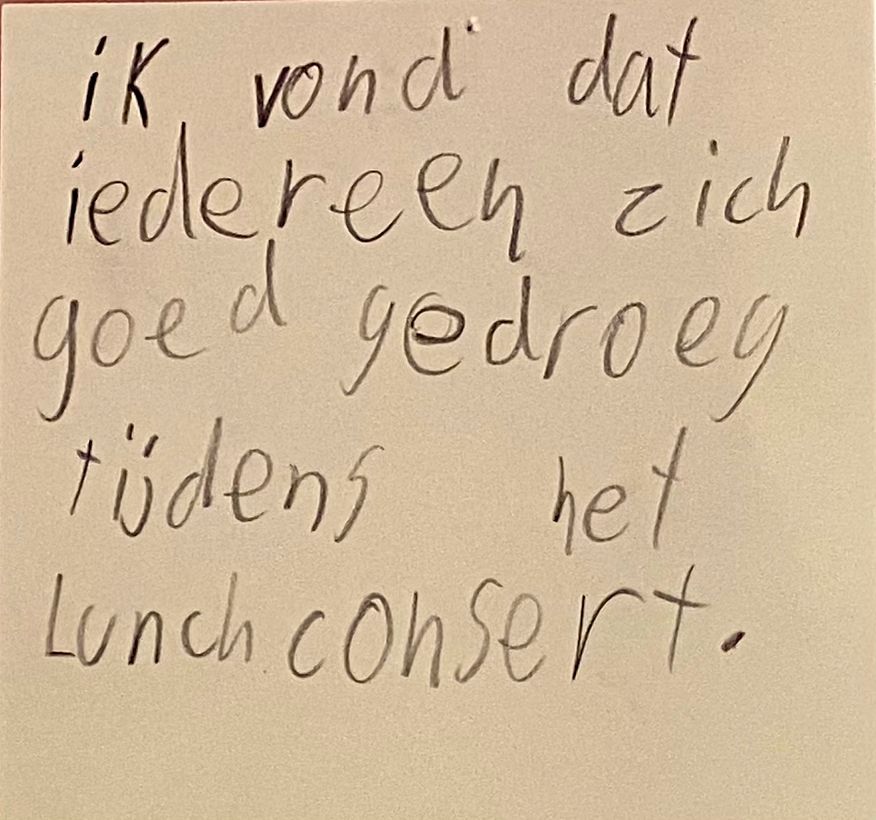 ik vond dat
iedereen zich
goed gedroeg
tijdens het
Lunchconsert.